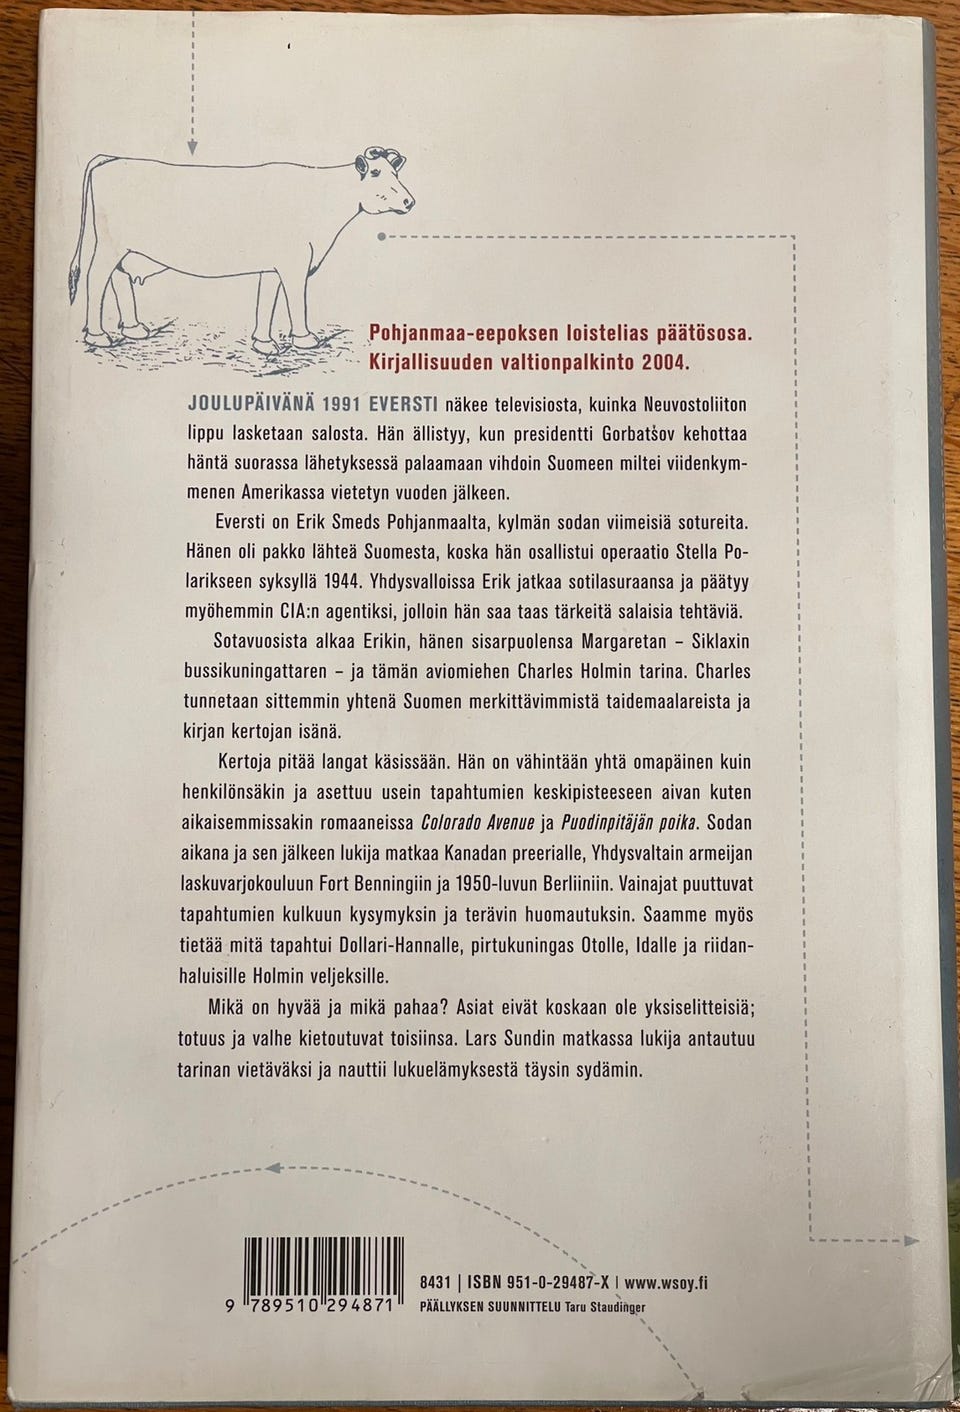 Pohjanmaa-eepoksen loistelias päätösosa.
Kirjallisuuden valtionpalkinto 2004.
JOULUPÄIVÄNÄ 1991 EVERSTI näkee televisiosta, kuinka Neuvostoliiton
lippu lasketaan salosta. Hän ällistyy, kun presidentti Gorbatšov kehottaa
häntä suorassa lähetyksessä palaamaan vihdoin Suomeen miltei viidenkym-
menen Amerikassa vietetyn vuoden jälkeen.
Eversti on Erik Smeds Pohjanmaalta, kylmän sodan viimeisiä sotureita.
Hänen oli pakko lähteä Suomesta, koska hän osallistui operaatio Stella Po-
larikseen syksyllä 1944. Yhdysvalloissa Erik jatkaa sotilasuraansa ja päätyy
myöhemmin CIA:n agentiksi, jolloin hän saa taas tärkeitä salaisia tehtäviä.
Sotavuosista alkaa Erikin, hänen sisarpuolensa Margaretan – Siklaxin
bussikuningattaren – ja tämän aviomiehen Charles Holmin tarina. Charles
tunnetaan sittemmin yhtenä Suomen merkittävimmistä taidemaalareista ja
kirjan kertojan isänä.
Kertoja pitää langat käsissään. Hän on vähintään yhtä omapäinen kuin
henkilönsäkin ja asettuu usein tapahtumien keskipisteeseen aivan kuten
aikaisemmissakin romaaneissa Colorado Avenue ja Puodinpitäjän poika. Sodan
aikana ja sen jälkeen lukija matkaa Kanadan preerialle, Yhdysvaltain armeijan
laskuvarjokouluun Fort Benningiin ja 1950-luvun Berliiniin. Vainajat puuttuvat
tapahtumien kulkuun kysymyksin ja terävin huomautuksin. Saamme myös
tietää mitä tapahtui Dollari-Hannalle, pirtukuningas Otolle, Idalle ja riidan-
haluisille Holmin veljeksille.
Mikä on hyvää ja mikä pahaa? Asiat eivät koskaan ole yksiselitteisiä;
totuus ja valhe kietoutuvat toisiinsa. Lars Sundin matkassa lukija antautuu
tarinan vietäväksi ja nauttii lukuelämyksestä täysin sydämin.
8431 | ISBN 951-0-29487-X | www.wsoy.fi
PÄÄLLYKSEN SUUNNITTELU Taru Staudinger
9 789510 294871